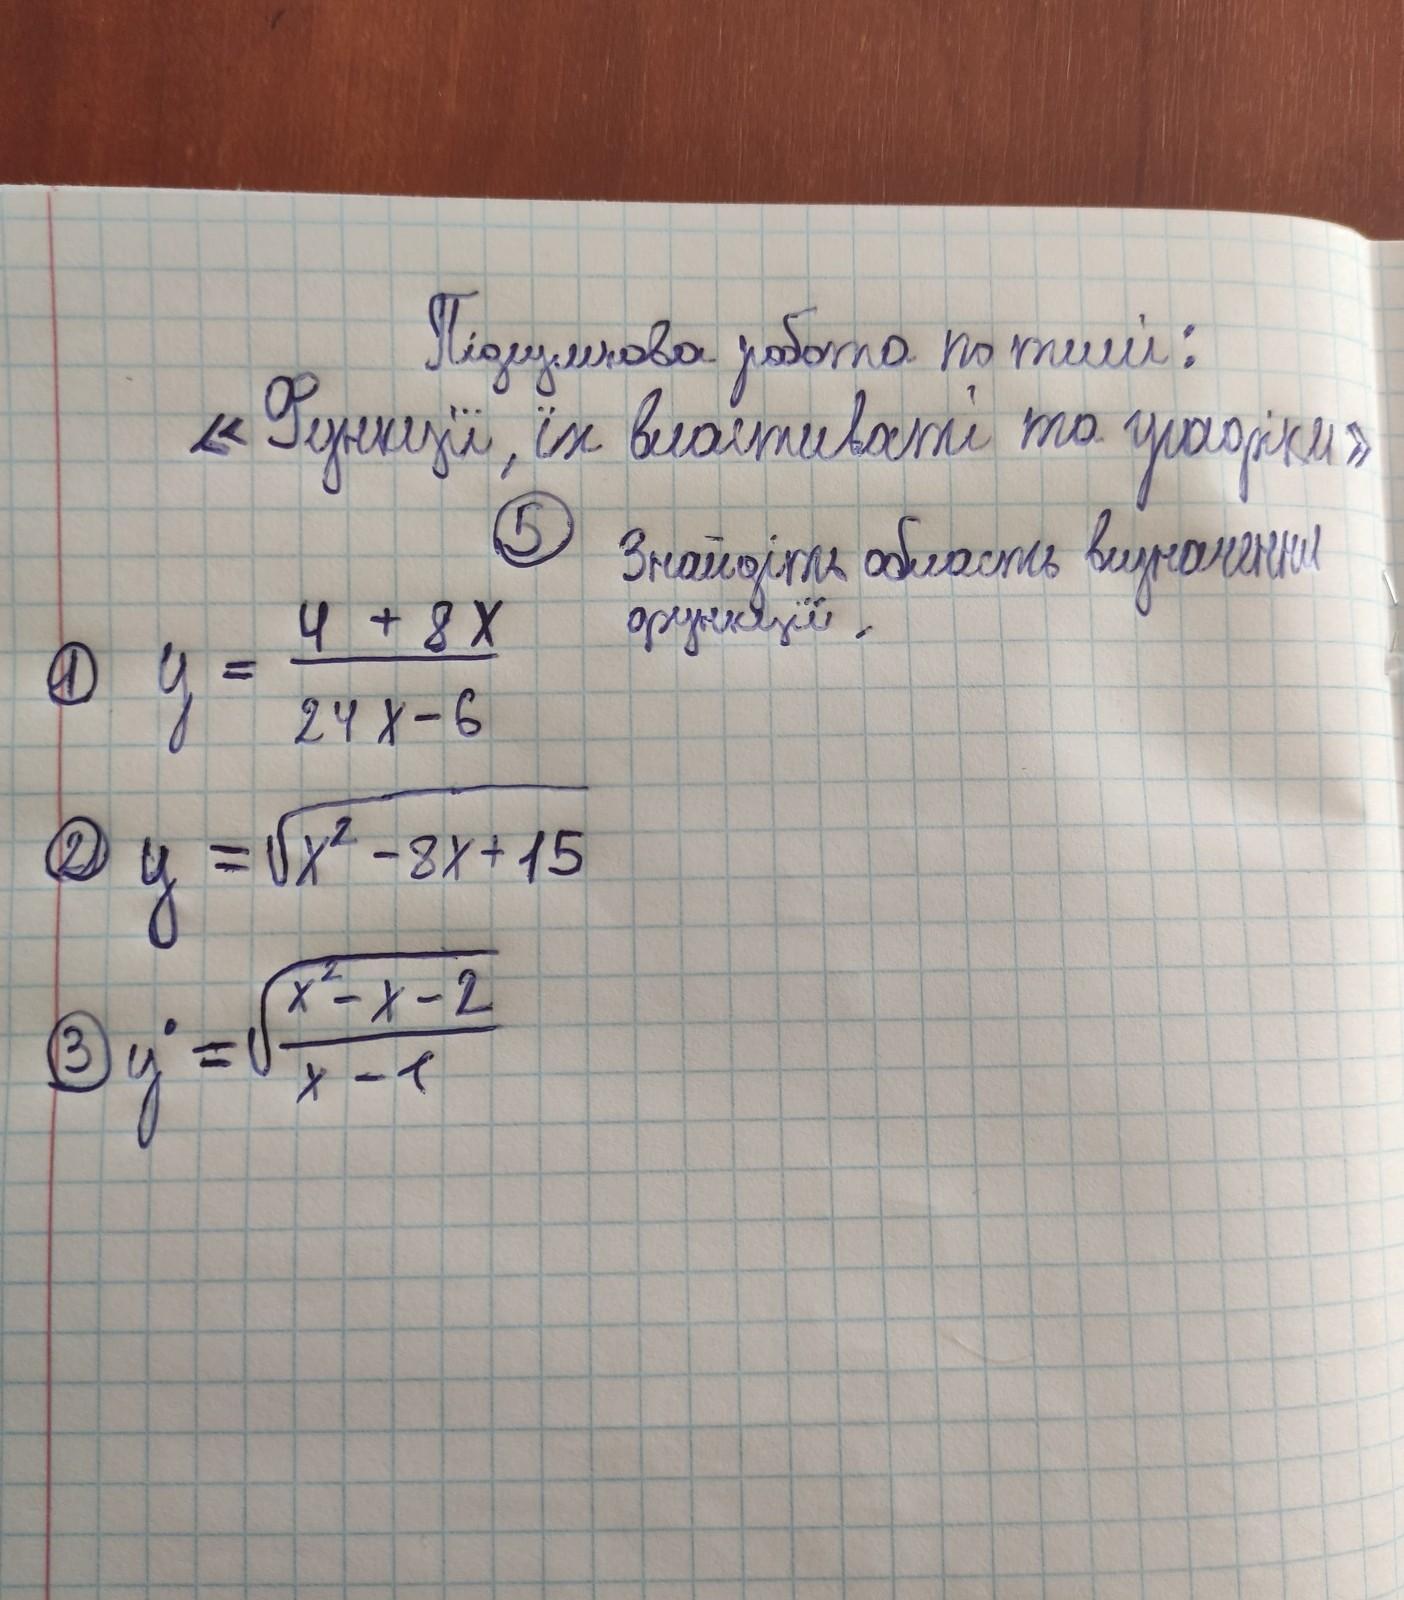 Підсумкова робота по темі:
«Функції, їх властиваті та графіки»
⑤ Знайдіть область визначення
функції.
① y = (4 + 8x)/(24x - 6)
② y = √(x² - 8x + 15)
③ y = √((x² - x - 2)/(x - 1))